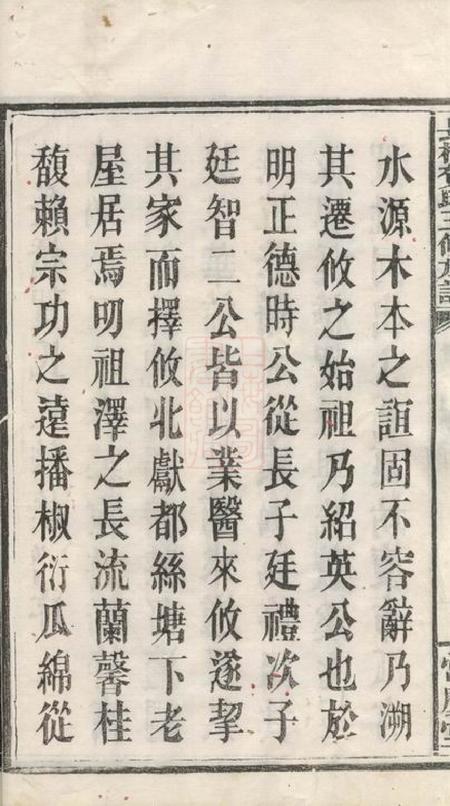 水源木本之誼固不容辭乃溯
其遷攸之始祖乃紹英公也於
明正德時公從長子廷禮次子
廷智二公皆以業醫來攸遂挈
其家而擇攸北獻都絲塘下老
屋居焉明祖澤之長流蘭馨桂
馥賴宗功之遠播椒衍瓜綿從